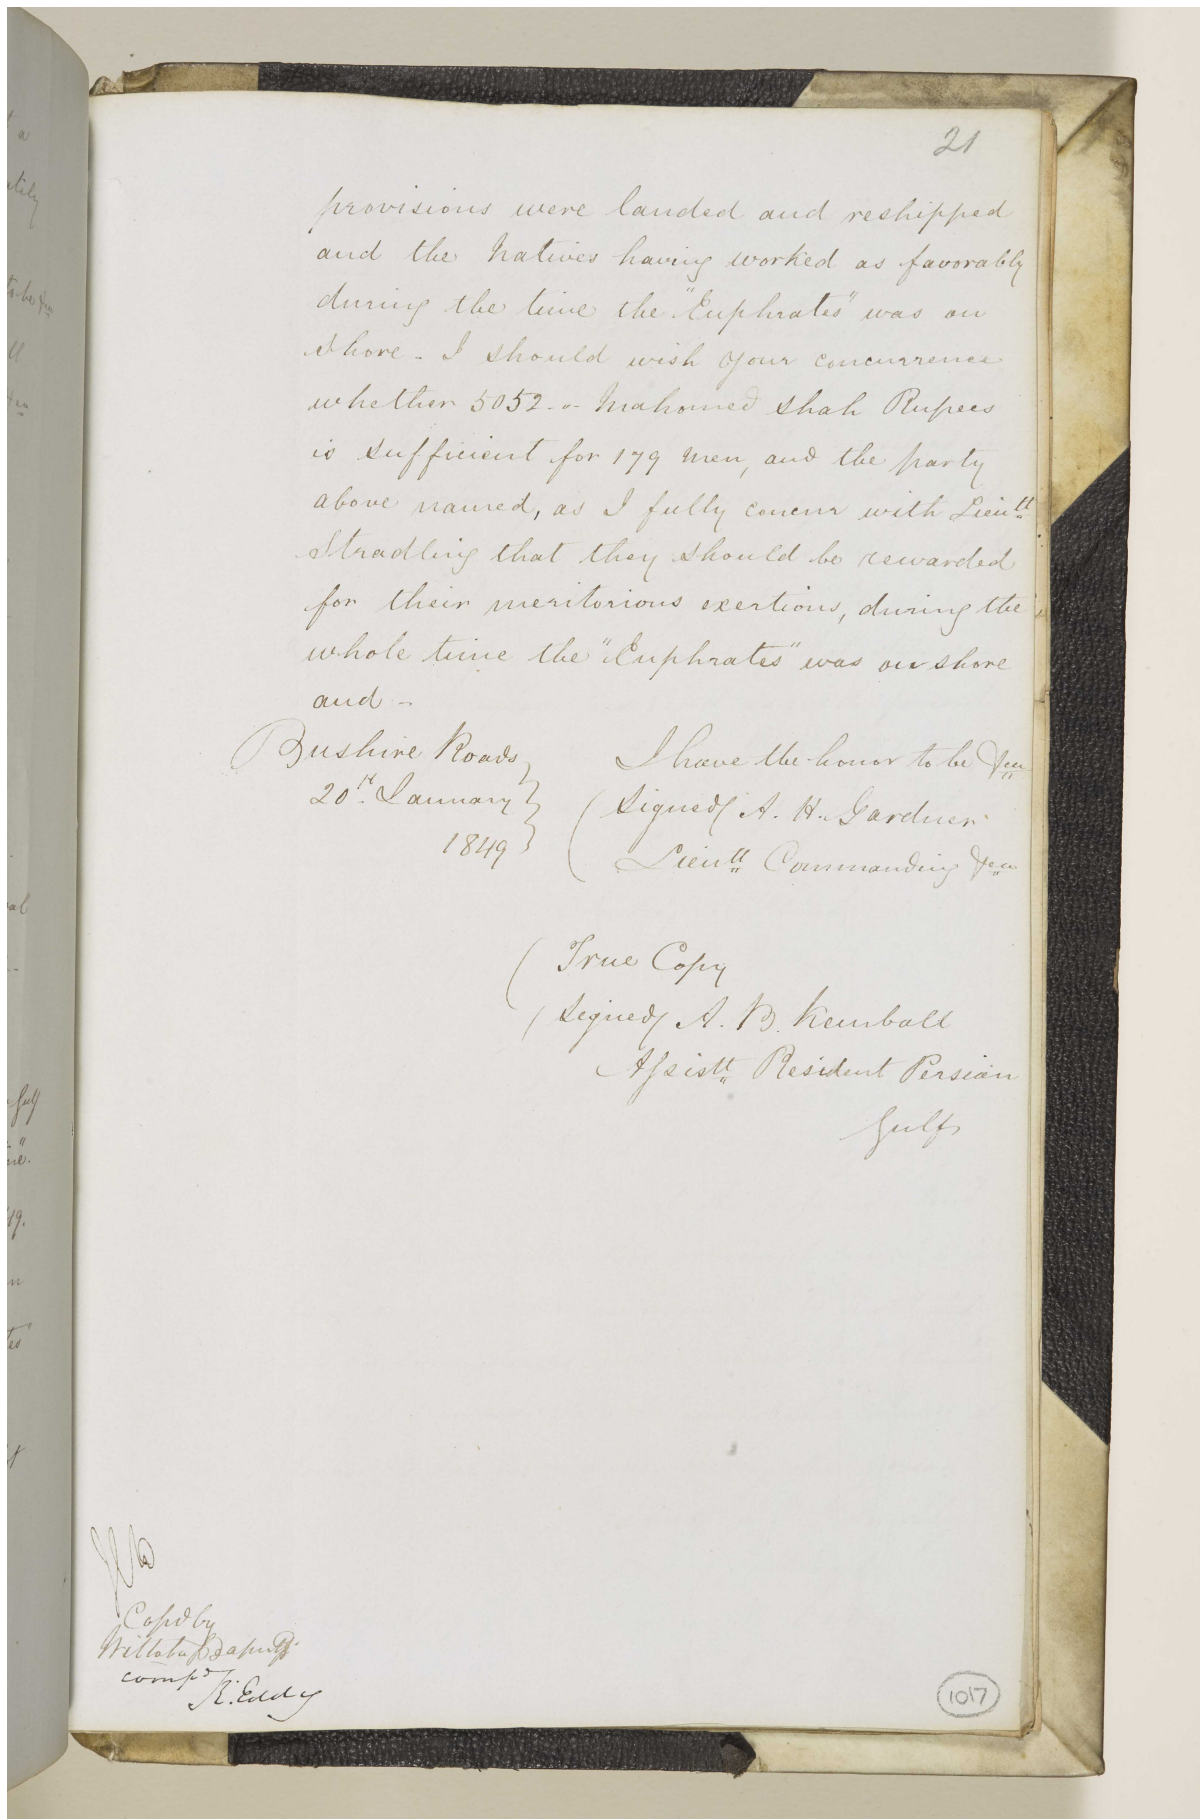 21
provisions were landed and reshipped
and the Natives having worked as favorably
during the time the "Euphrates" was on
shore - I should wish your concurrence
whether 5052 - " - Mahomed Shah Rupees
is sufficient for 179 Men, and the party
above named, as I fully concur with Lieutt
Stradling that they should be rewarded
for their meritorious exertions, during the
whole time the "Euphrates" was on shore
and -
Bushire Roads
20th January
1849
I have the honor to be &ca
Signed A. H. Gardner
Lieutt Commanding &ca
True Copy
Signed A. B. Kemball
Assistt Resident Persian
Gulf
Copd by
compd
R. Eddy
1017